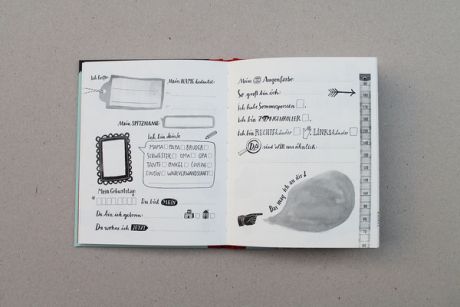 Ich heiße:
Mein NAME bedeutet:
Mein SPITZNAME:
Ich bin dein/e
MAMA PAPA BRUDER
SCHWESTER OMA OPA
TANTE ONKEL COUSINE
COUSIN WAHLVERWANDSCHAFT
Mein Geburtstag:
Du bist MEIN
Da bin ich geboren:
Da wohne ich JETZT
Meine Augenfarbe:
So groß bin ich:
Ich habe Sommersprossen
Ich bin
Ich bin RECHTShänder LINKShänder
DA sind WIR uns ähnlich:
Das mag ich an dir!